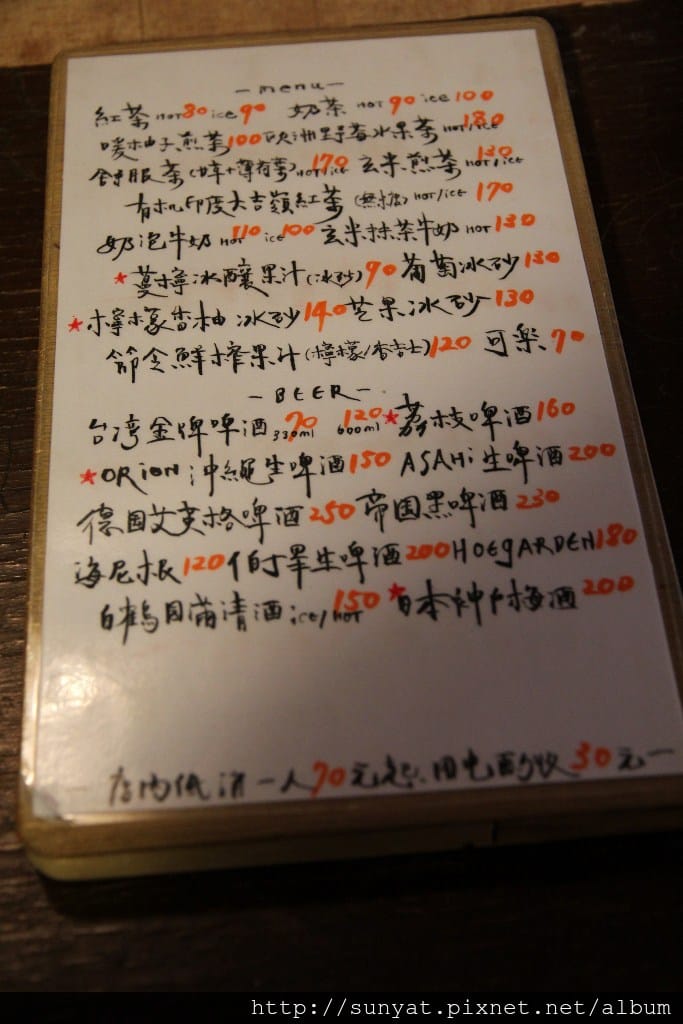 -menu-
紅茶 HOT80 ice90 奶茶 HOT 90 ice100
暖柚子煎茶100 歐洲野莓水果茶 HOT/ice 180
舒服茶(甘草+薄荷葉)HOT/ice 170 玄米煎茶 HOT/ice 130
有机印度大吉嶺紅茶(無糖)HOT/ice 170
奶泡牛奶 HOT 110 ice 100 玄米抹茶牛奶 HOT 130
★蔓檸冰釀果汁(冰砂)90 葡萄冰砂130
★檸檬香柚冰砂140 芒果冰砂130
節令鮮榨果汁(檸檬/香吉士)120 可樂70
-BEER-
台湾金牌啤酒 70 330ml 120 600ml ★荔枝啤酒160
★ORION沖繩生啤酒150 ASAHi生啤酒200
德国艾英格啤酒250 帝国黑啤酒230
海尼根120 伯畢生啤酒200 HOEGARDEN180
白鶴月滿清酒ice/HOT 150 ★日本神戶梅酒200
店內低消一人70元起、用电酌收30元一
http://sunyat.pixnet.net/album